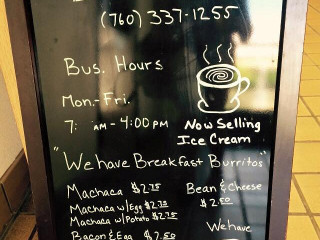 (760) 337-1255
Bus. Hours
Mon.-Fri.
7: AM - 4:00 PM
Now Selling
Ice Cream
"We have Breakfast Burritos"
Machaca $2.75
Machaca w/Egg $2.75
Machaca w/Potato $2.75
Bacon & Egg $2.50
Bean & Cheese
$2.50
We have